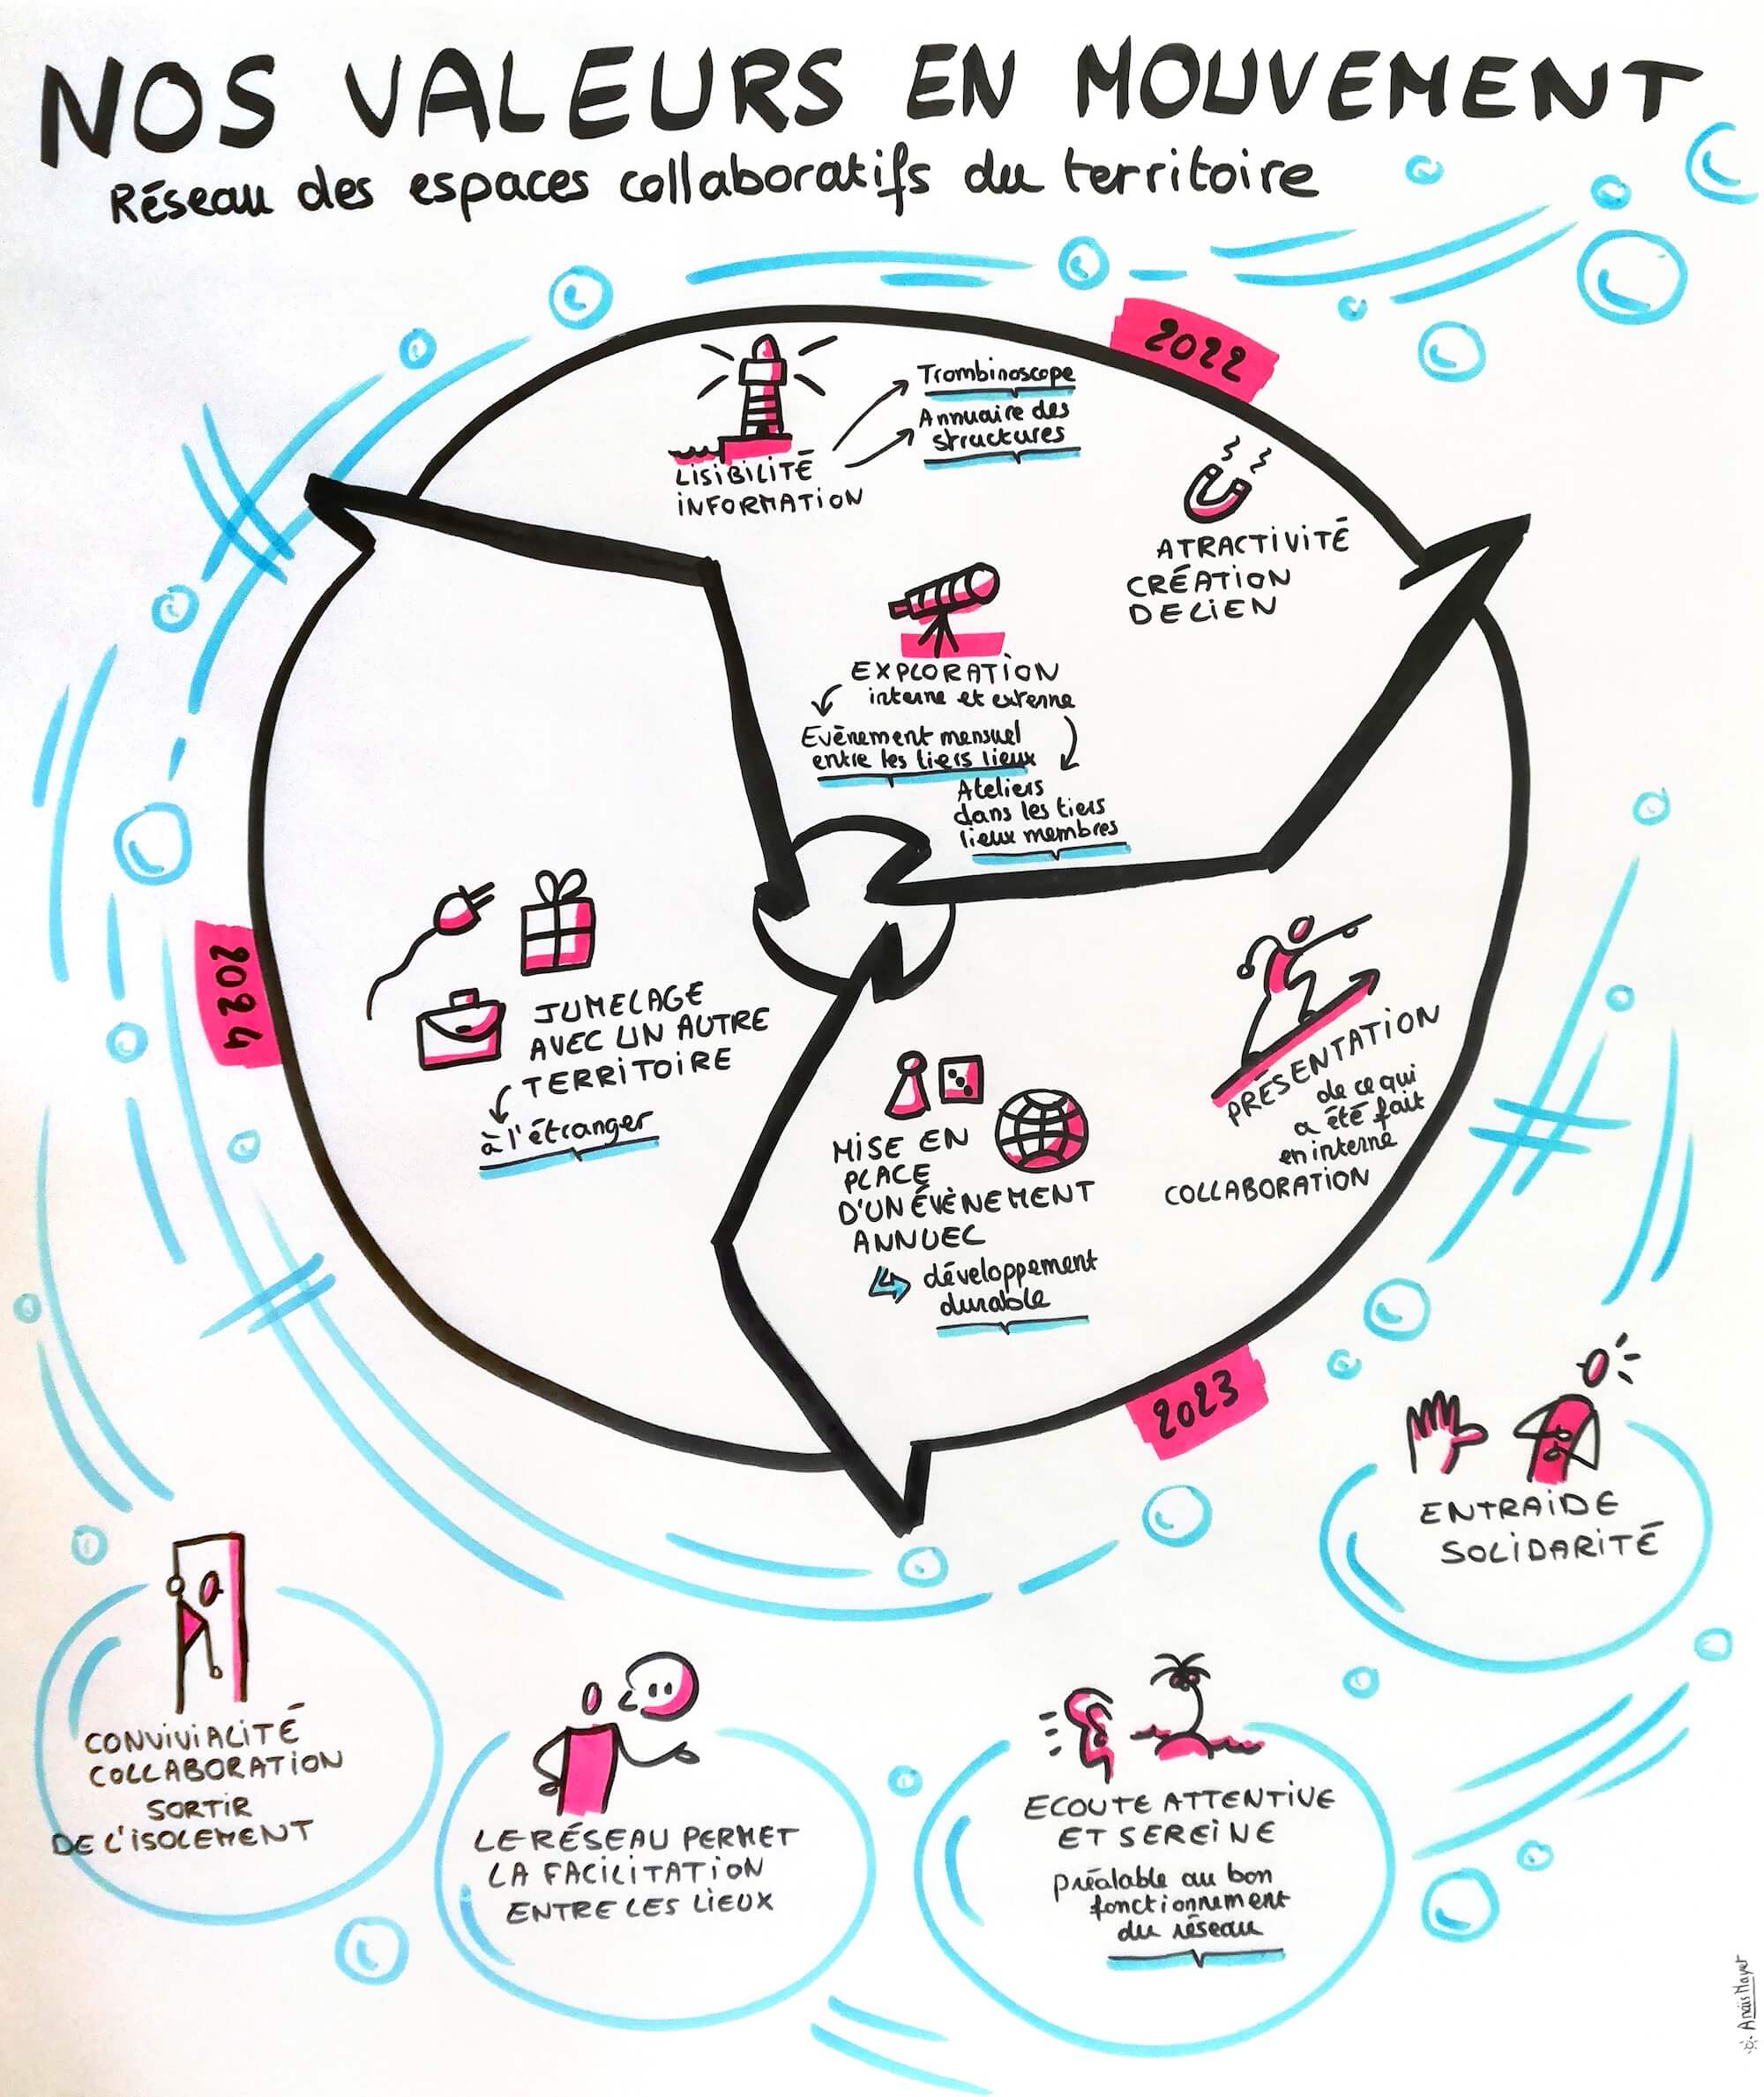 NOS VALEURS EN MOUVEMENT
Réseau des espaces collaboratifs du territoire
2022
LISIBILITÉ
INFORMATION
Trombinoscope
Annuaire des
structures
ATRACTIVITÉ
CRÉATION
DE LIEN
EXPLORATION
interne et externe
Evènement mensuel
entre les tiers lieux
Ateliers
dans les tiers
lieux membres
2023
PRÉSENTATION
de ce qui
a été fait
en interne
COLLABORATION
MISE EN
PLACE
D'UN ÉVÈNEMENT
ANNUEL
développement
durable
2024
JUMELAGE
AVEC UN AUTRE
TERRITOIRE
à l'étranger
ENTRAIDE
SOLIDARITÉ
CONVIVIALITÉ
COLLABORATION
SORTIR
DE L'ISOLEMENT
LE RÉSEAU PERMET
LA FACILITATION
ENTRE LES LIEUX
ECOUTE ATTENTIVE
ET SEREINE
préalable au bon
fonctionnement
du réseau
Anaïs Mayet